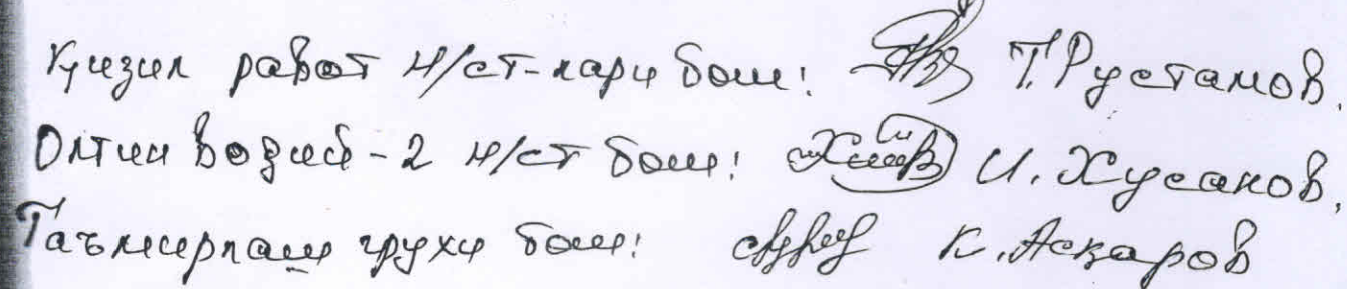 Кизил работ н/ст-лари бош: Т.Рустамов.
Олтин водий-2 н/ст бош: И.Хусанов.
Таъмирлаш гурухи бош: К.Аскаров